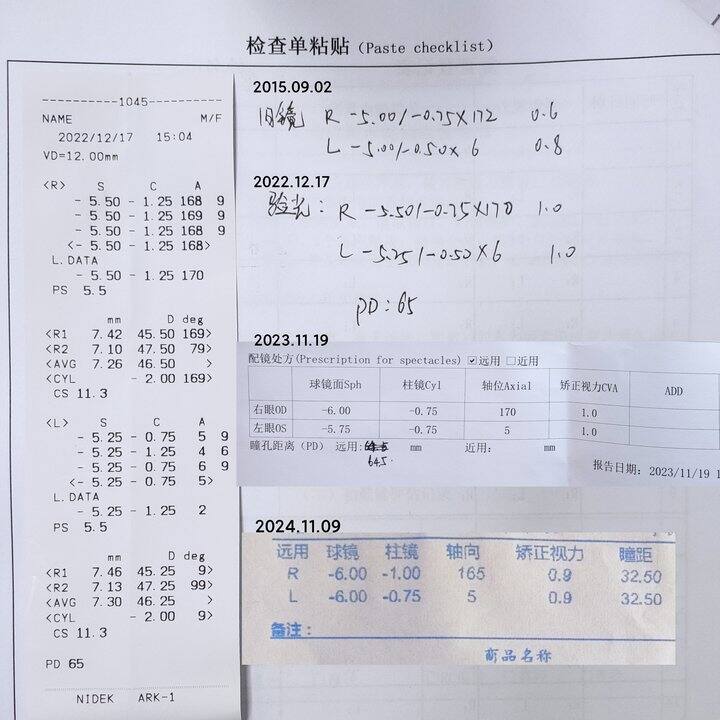 检查单粘贴（Paste checklist）
-----------1045-----------
NAME M/F
2022/12/17 15:04
VD=12.00mm
<R> S C A
- 5.50 - 1.25 168 9
- 5.50 - 1.25 169 9
- 5.50 - 1.25 168 9
<- 5.50 - 1.25 168>
L.DATA
- 5.50 - 1.25 170
PS 5.5
mm D deg
<R1 7.42 45.50 169>
<R2 7.10 47.50 79>
<AVG 7.26 46.50 >
<CYL - 2.00 169>
CS 11.3
<L> S C A
- 5.25 - 0.75 5 9
- 5.25 - 1.25 4 6
- 5.25 - 0.75 6 9
<- 5.25 - 0.75 5>
L.DATA
- 5.25 - 1.25 2
PS 5.5
mm D deg
<R1 7.46 45.25 9>
<R2 7.13 47.25 99>
<AVG 7.30 46.25 >
<CYL - 2.00 9>
CS 11.3
PD 65
NIDEK ARK-1
2015.09.02
旧镜 R -5.00/-0.75×172 0.6
L -5.00/-0.50×6 0.8
2022.12.17
验光: R -5.50/-0.75×170 1.0
L -5.25/-0.50×6 1.0
PD:65
2023.11.19
配镜处方(Prescription for spectacles) ☑远用 □近用
球镜面Sph 柱镜Cyl 轴位Axial 矫正视力CVA ADD
右眼OD -6.00 -0.75 170 1.0
左眼OS -5.75 -0.75 5 1.0
瞳孔距离（PD） 远用: mm 近用: mm
64.5
报告日期: 2023/11/19 1
2024.11.09
远用 球镜 柱镜 轴向 矫正视力 瞳距
R -6.00 -1.00 165 0.9 32.50
L -6.00 -0.75 5 0.9 32.50
备注:
商品名称